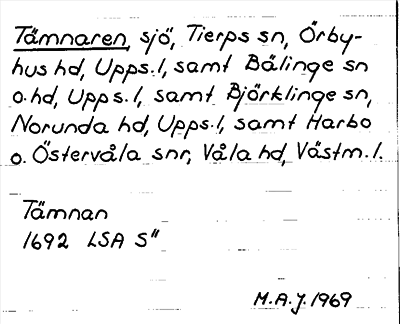 Tämnaren, sjö, Tierps sn, Örby-
hus hd, Upps. l, samt Bälinge sn
o. hd, Upps. l, samt Björklinge sn,
Norunda hd, Upps. l, samt Harbo
o. Östervåla snr, Våla hd, Västm. l.
Tämnan
1692 LSA S"
M.A.J. 1969